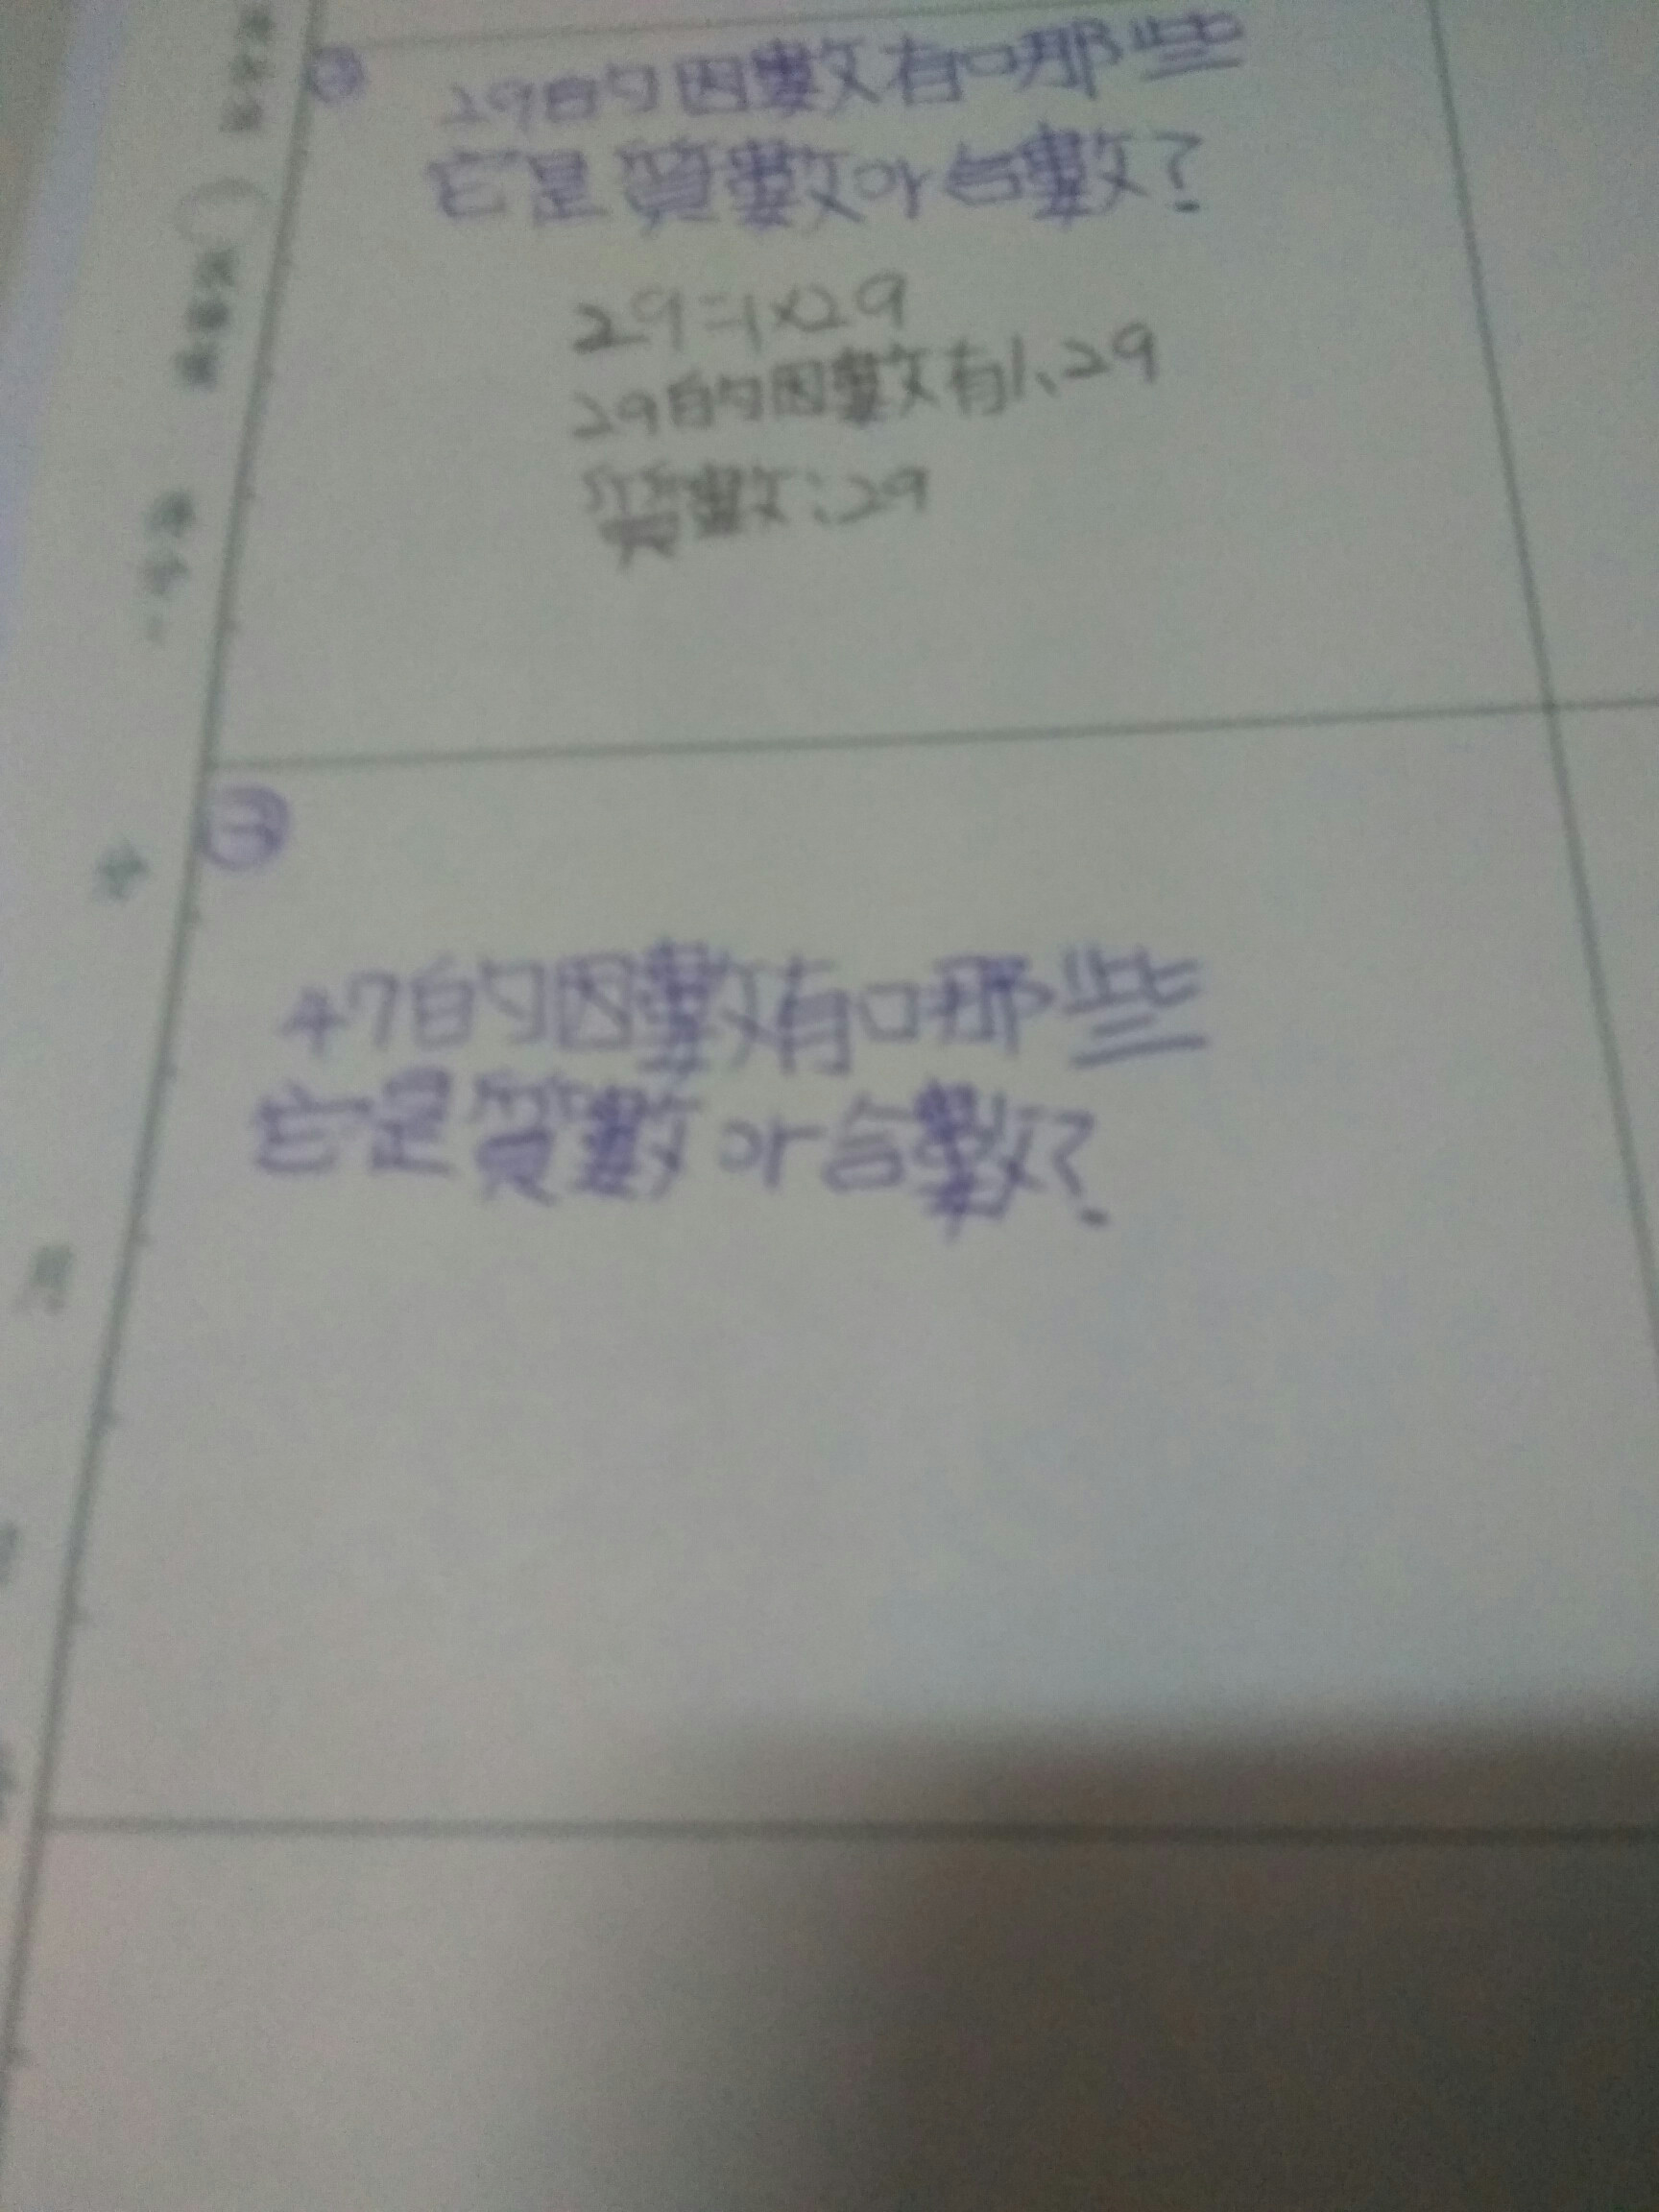 29的因數有哪些
它是質數or合數?
29=1×29
29的因數有1、29
質數:29
③
47的因數有哪些
它是質數or合數?